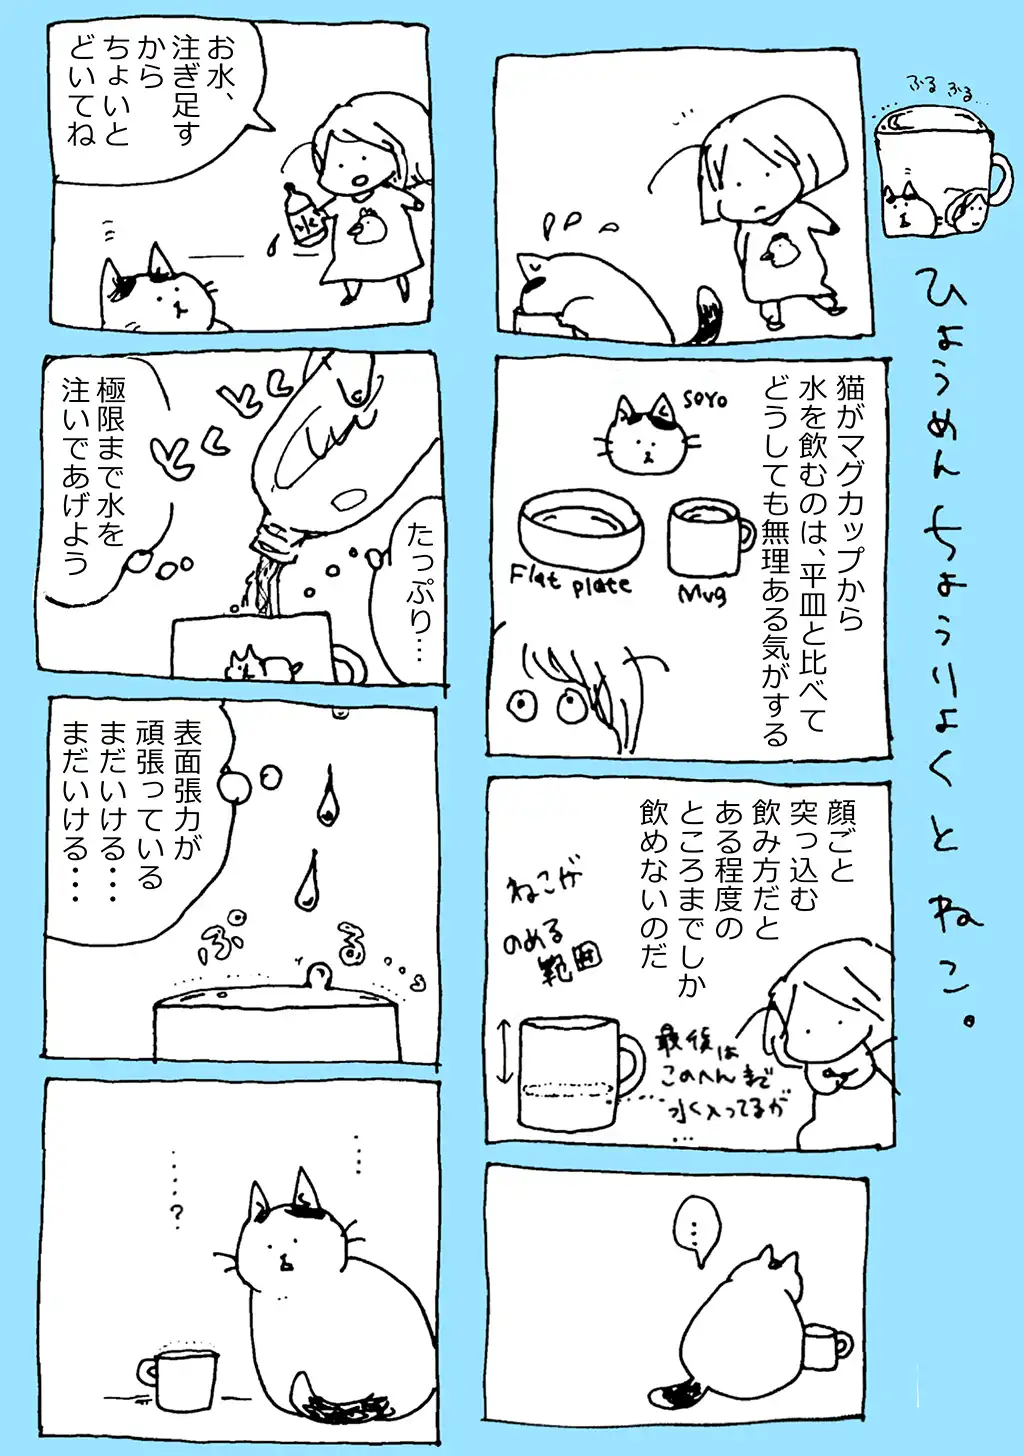 ひょうめんちょうりょくとねこ。
ぷる ぷる...
猫がマグカップから
水を飲むのは、平皿と比べて
どうしても無理ある気がする
SOYO
Flat plate
Mug
顔ごと
突っ込む
飲み方だと
ある程度の
ところまでしか
飲めないのだ
ねこが
のめる
範囲
最後は
このへんまで
水く入ってるが
...
…
お水、
注ぎ足す
から
ちょいと
どいてね
水
極限まで水を
注いであげよう
たっぷり…
表面張力が
頑張っている
まだいける・・・
まだいける・・・
ぷる
....
.....?